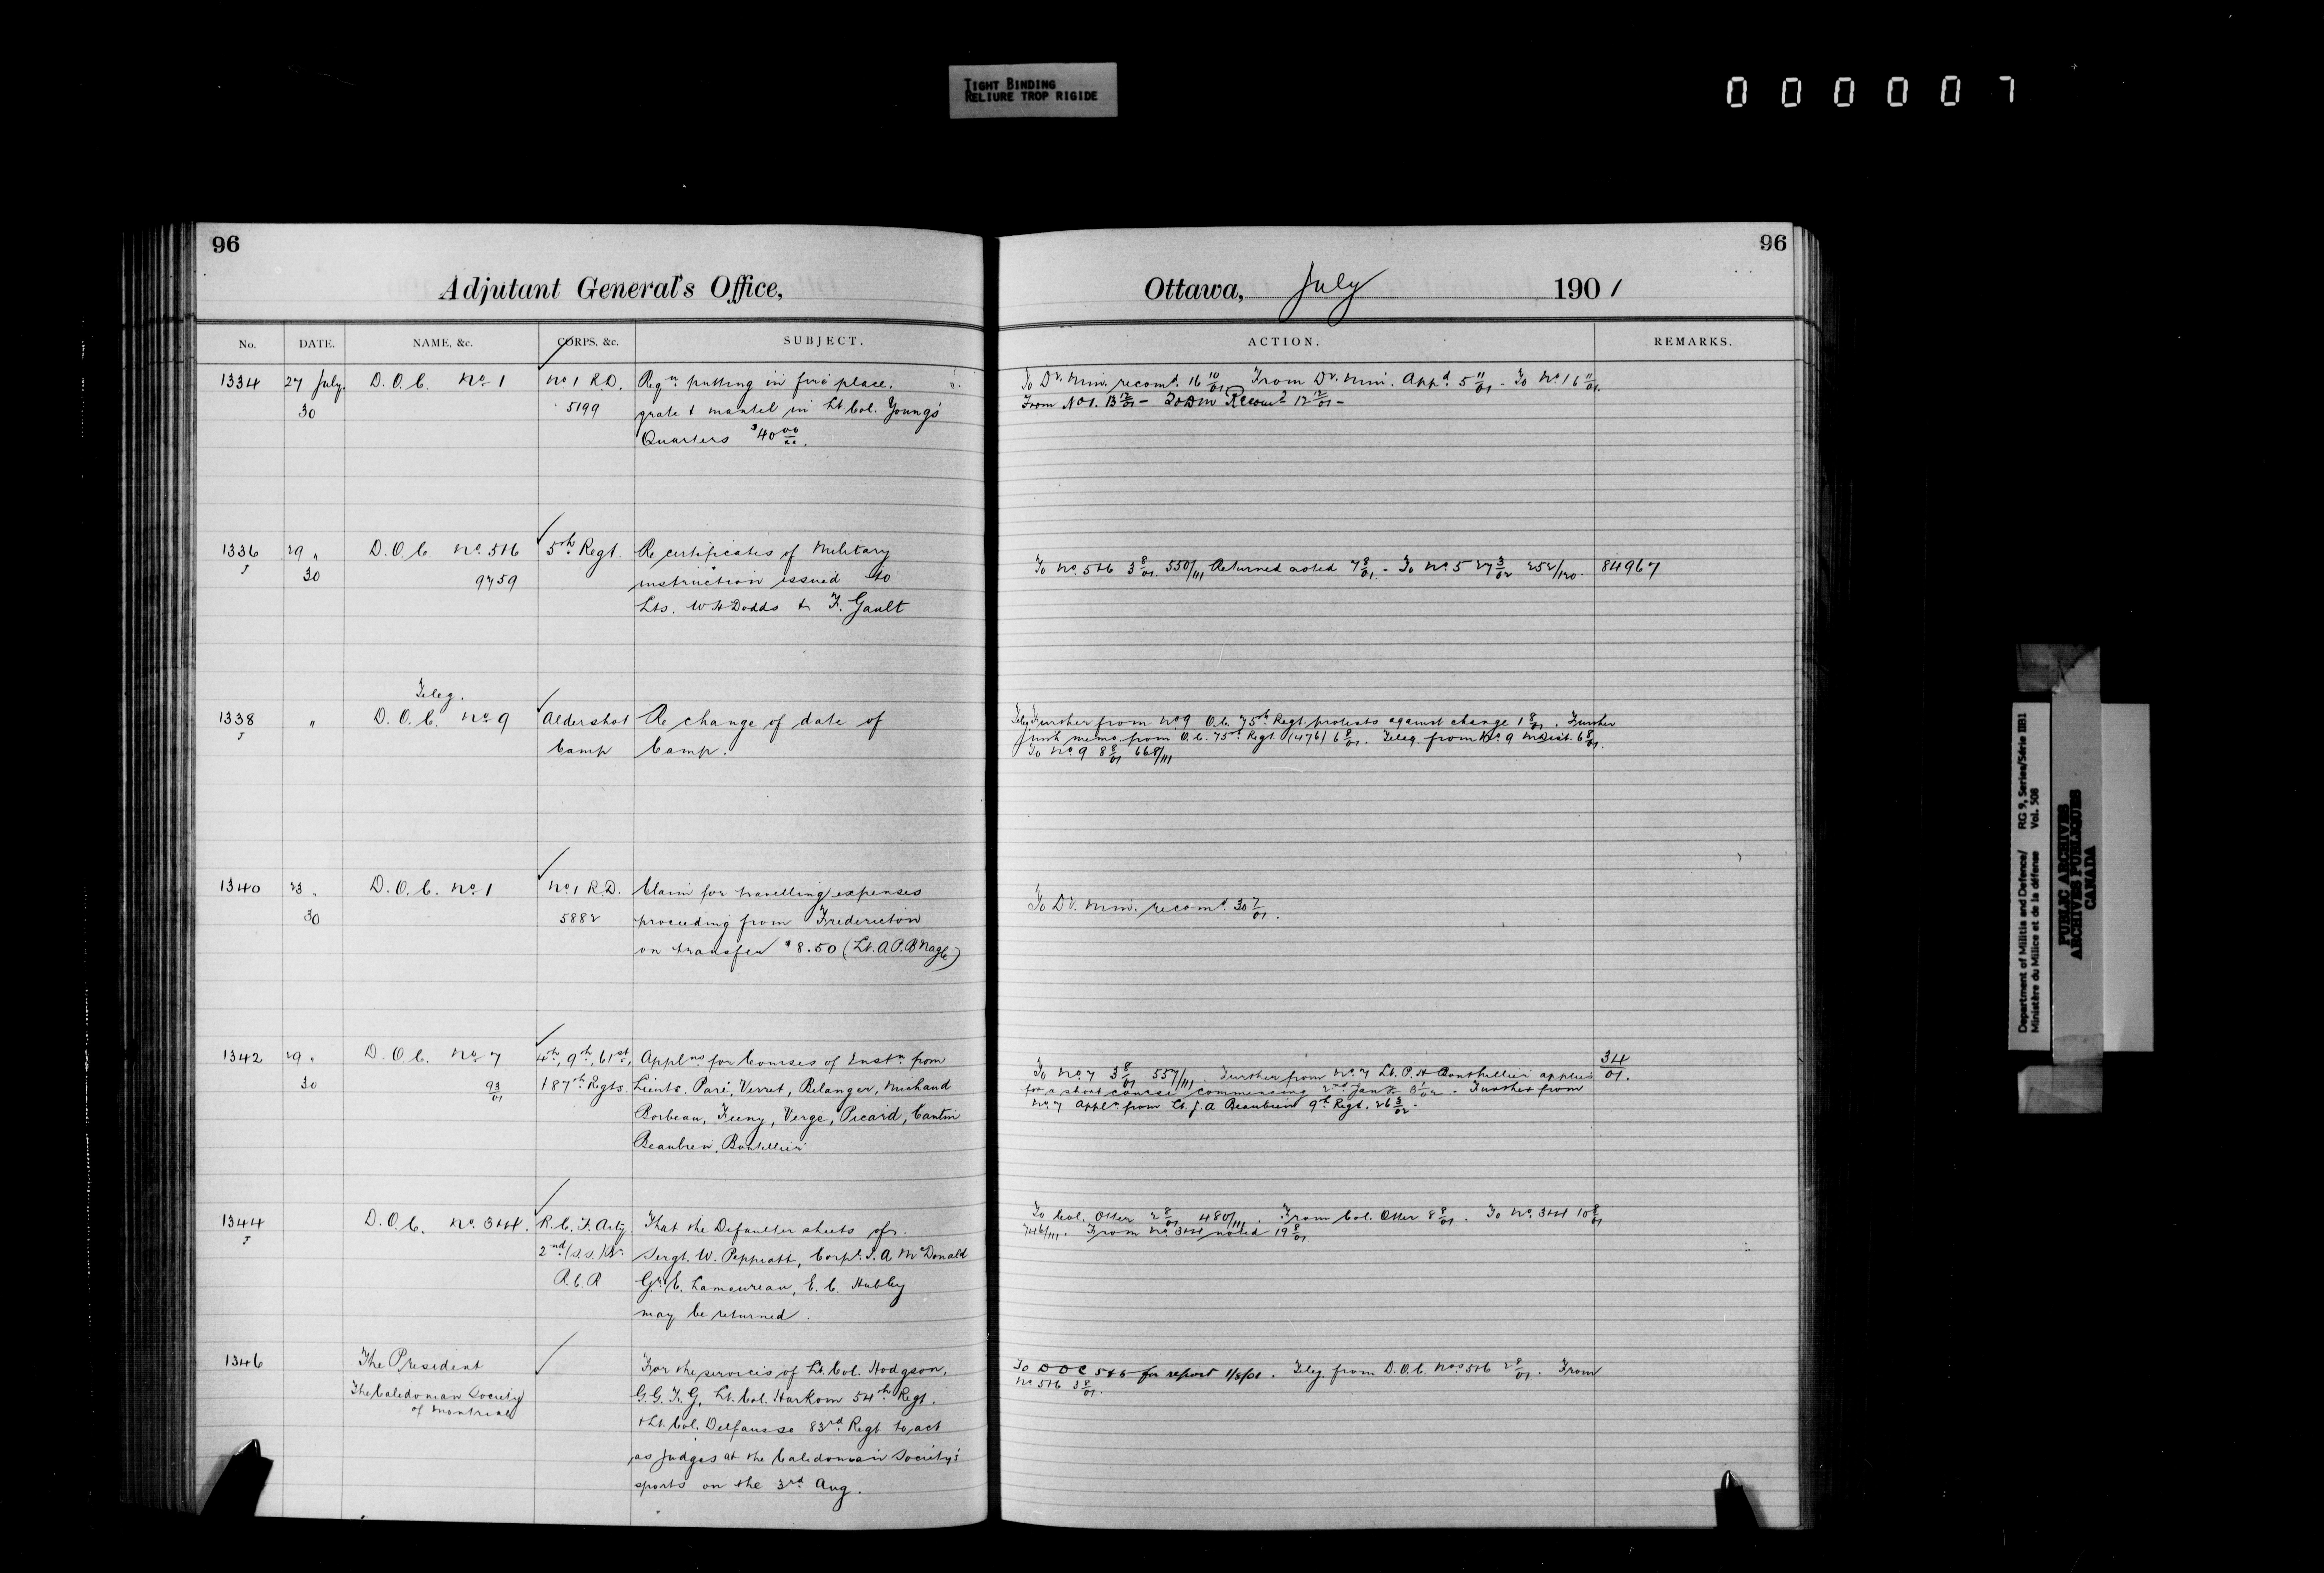 TIGHT BINDING
RELIURE TROP RIGIDE
000007
96
Adjutant General's Office,
No. DATE. NAME, &c. CORPS, &c. SUBJECT.
1334 27 July. D.O.C. No 1 No 1 R.D. Reqn putting in fire place,
30 5199 grate & mantel in Lt Col. Young's
Quarters $40 00/xx.
1336 29 " D.O.C. No. 5&6 5th Regt. Re certificates of Military
J 30 9759 instruction issued to
Lts. W H Dodds & F. Gault
Teleg.
1338 " D.O.C. No 9 Aldershot Re change of date of
J Camp Camp.
1340 23 " D.O.C. No 1 No 1 R.D. Claim for travelling expenses
30 5882 proceeding from Fredericton
on transfer $8.50 (Lt. A.P.B Nagle)
1342 29 " D.O.C. No 7 4th, 9th, 61st, Applns for Courses of Instn from
30 93/01 & 87th Regts. Lieuts. Paré, Verret, Belanger, Michaud
Borbeau, Feeny, Verge, Picard, Cantin
Beaubien, Bouthellier
1344 D.O.C. No. 3&4. R.C.F. Arty. That the Defaulter sheets of
J 2nd (S.S.) Bn. Sergt. W. Peppiatt, Corpl. J. A McDonald
R.C.R. Gr. E. Lamoureau, E. C. Hubley
may be returned.
1346 The President For the services of Lt. Col. Hodgson,
The Caledonian Society G.G.F.G, Lt. Col. Harkom 54th Regt.
of Montreal
& Lt. Col. Delfausse 83rd Regt to act
as judges at the Caledonian Society's
sports on the 3rd Aug.
96
Ottawa, July 1901
ACTION. REMARKS.
To Dr. Min. recomd. 16 10/01. From Dr. Min. Appd 5 11/01 - To No. 1 6 11/01.
From No 1. 13 12/01 - To DM Recomd 17 12/01 -
To No. 5&6 3 8/01. 550/111 Returned noted 7 8/01. - To No. 5 27 3/02 252/120. 84967
Teleg. Further from No 9 O.C. 75th Regt. protests against change 1 8/01. Further
with memo from O.C. 75th Regt. (476) 6 8/01. Teleg. from No. 9 M Dist. 6 8/01.
To No 9 8 8/01 668/111
To Dr. Min. recomd. 30 7/01.
To No 7 3 8/01 557/111. Further from No. 7 Lt. P. H Bouthellier applies 34/01.
for a short course commencing 2nd Jany. 3 1/02. - Further from
No. 7 Appln from Lt. J. A Beaubien 9th Regt. 26 3/02.
To Col. Otter 2 8/01 480/111. From Col. Otter 8 8/01. To No. 3&4 10 8/01
746/111. From No. 3&4 noted 19 8/01
To DOC 5&6 for report 1/8/01. Teleg. from D.O.C. Nos 5&6 2 8/01. From
No 5&6 3 8/01.
Department of Militia and Defence/ RG 9, Series/Série IIB1
Ministère du Milice et de la défense Vol. 508
PUBLIC ARCHIVES
ARCHIVES PUBLIQUES
CANADA